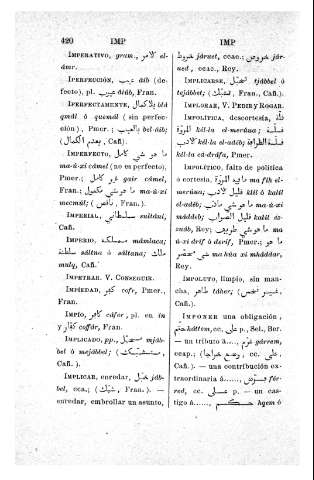 420 IMP IMP
IMPERATIVO, gram., الامر el-
ámr.
IMPERFECCIÓN, عيب áib (de-
fecto), pl. عيوب áiúb, Fran.
IMPERFECTAMENTE, بلا كمال blá
qmál ó quemál (sin perfec-
ción), Pmer.; بالعيب bel-áib;
(بعدم الكمال, Cañ.).
IMPERFECTO, ما هو شي كامل
ma-ú-xi cámel (no es perfecto),
Pmer.; غير كامل gair cámel,
Fran.; ما هو شي مكمول ma-ú-xi
mecmúl; (ناقص, Fran.).
IMPERIAL, سلطاني sultáni,
Cañ.
IMPERIO, مملكة mámlaca;
سلطنة sáltna ó sáltana; ملك
mulq, Cañ.
IMPETRAR. V. CONSEGUIR.
IMPIEDAD, كفر cofr, Pmer.,
Fran.
IMPÍO, كافر cáfer, pl. en in
y كفار coffár, Fran.
IMPLICADO, pp.,
bel ó mejábbel;
Cañ.).
IMPLICAR, enredar, خبل jáb-
bel, cca.; (شبك, Fran.). —
enredar, embrollar un asunto,
járuet, ccac.; jár-
ued, ccac., Rey.
IMPLICARSE, tjábbel ó
tejábbel; (تشبك, Fran., Cañ.).
IMPLORAR. V. PEDIR Y ROGAR.
IMPOLÍTICA, descortesía, قلة
المروة kil-la el-merúua; قلة
الادب kil-la el-adéb; قلة الظرافة
kil-la ed-dráfa, Pmer.
IMPOLÍTICO, falto de política
ó cortesía, ما فيه المروة ma fih el-
merúua; قليل الادب klil ó kalil
el-adéb; ما هو شي مادب ma-ú-xi
máddeb; قليل الصواب kalil es-
suáb, Rey; ما هو شي ظريف ma
ú-xi drif ó derif, Pmer.; ما هو
شي محضر ma húa xi mháddar,
Rey.
IMPOLUTO, limpio, sin man-
cha, طاهر táher; (غير نجس,
Cañ.).
IMPONER una obligación,
حتم háttem, cc. على p., Sel., Ber.
— un tributo á...., غرم gárrem,
ccap.; (وضع خراجا, cc. على,
Cañ.). — una contribución ex-
traordinaria á......, فرض fár-
red, cc. على p. — un cas-
tigo á......, حكم hqem ó